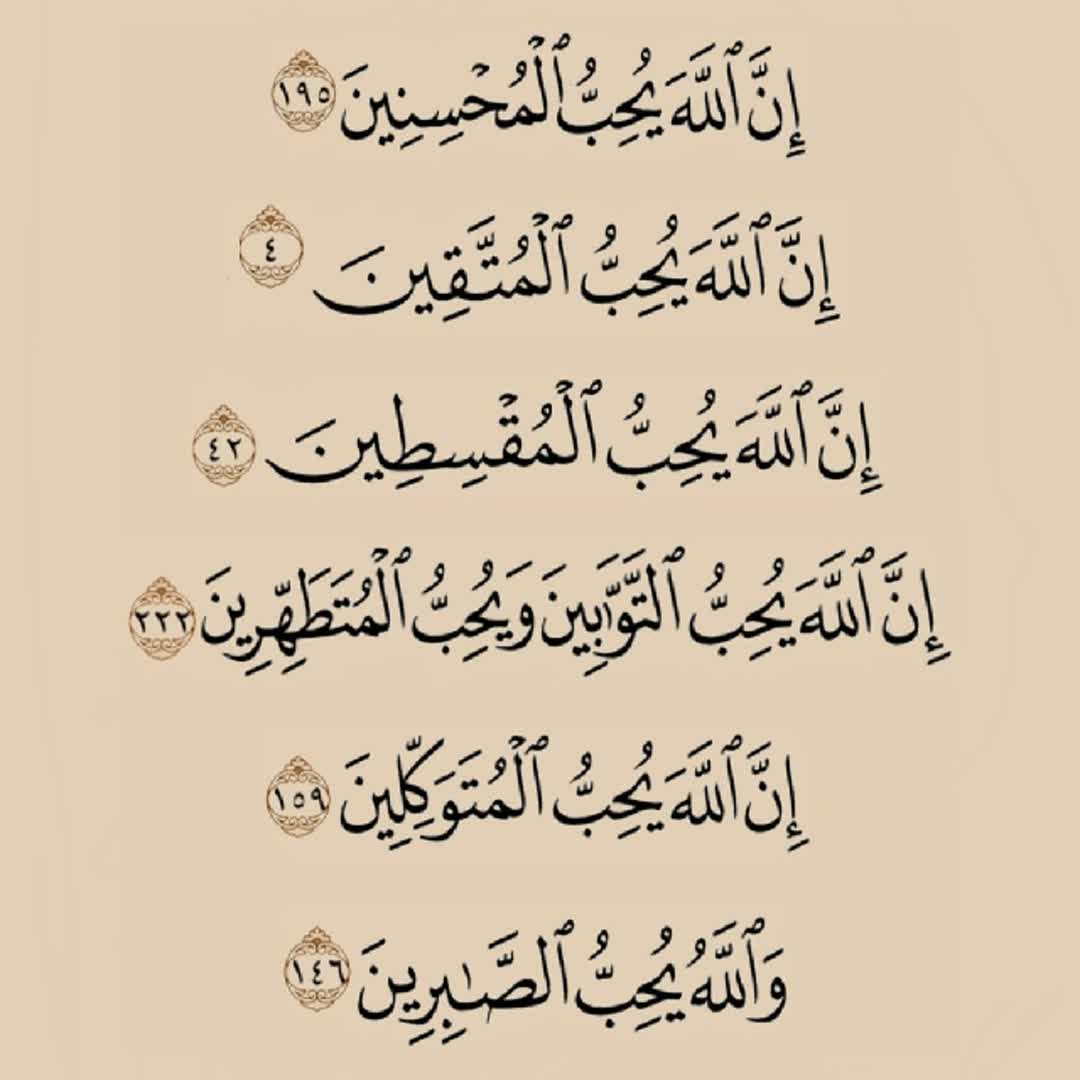 إِنَّ ٱللَّهَ يُحِبُّ ٱلْمُحْسِنِينَ ١٩٥
إِنَّ ٱللَّهَ يُحِبُّ ٱلْمُتَّقِينَ ٤
إِنَّ ٱللَّهَ يُحِبُّ ٱلْمُقْسِطِينَ ٤٢
إِنَّ ٱللَّهَ يُحِبُّ ٱلتَّوَّٰبِينَ وَيُحِبُّ ٱلْمُتَطَهِّرِينَ ٢٢٢
إِنَّ ٱللَّهَ يُحِبُّ ٱلْمُتَوَكِّلِينَ ١٥٩
وَٱللَّهُ يُحِبُّ ٱلصَّٰبِرِينَ ١٤٦